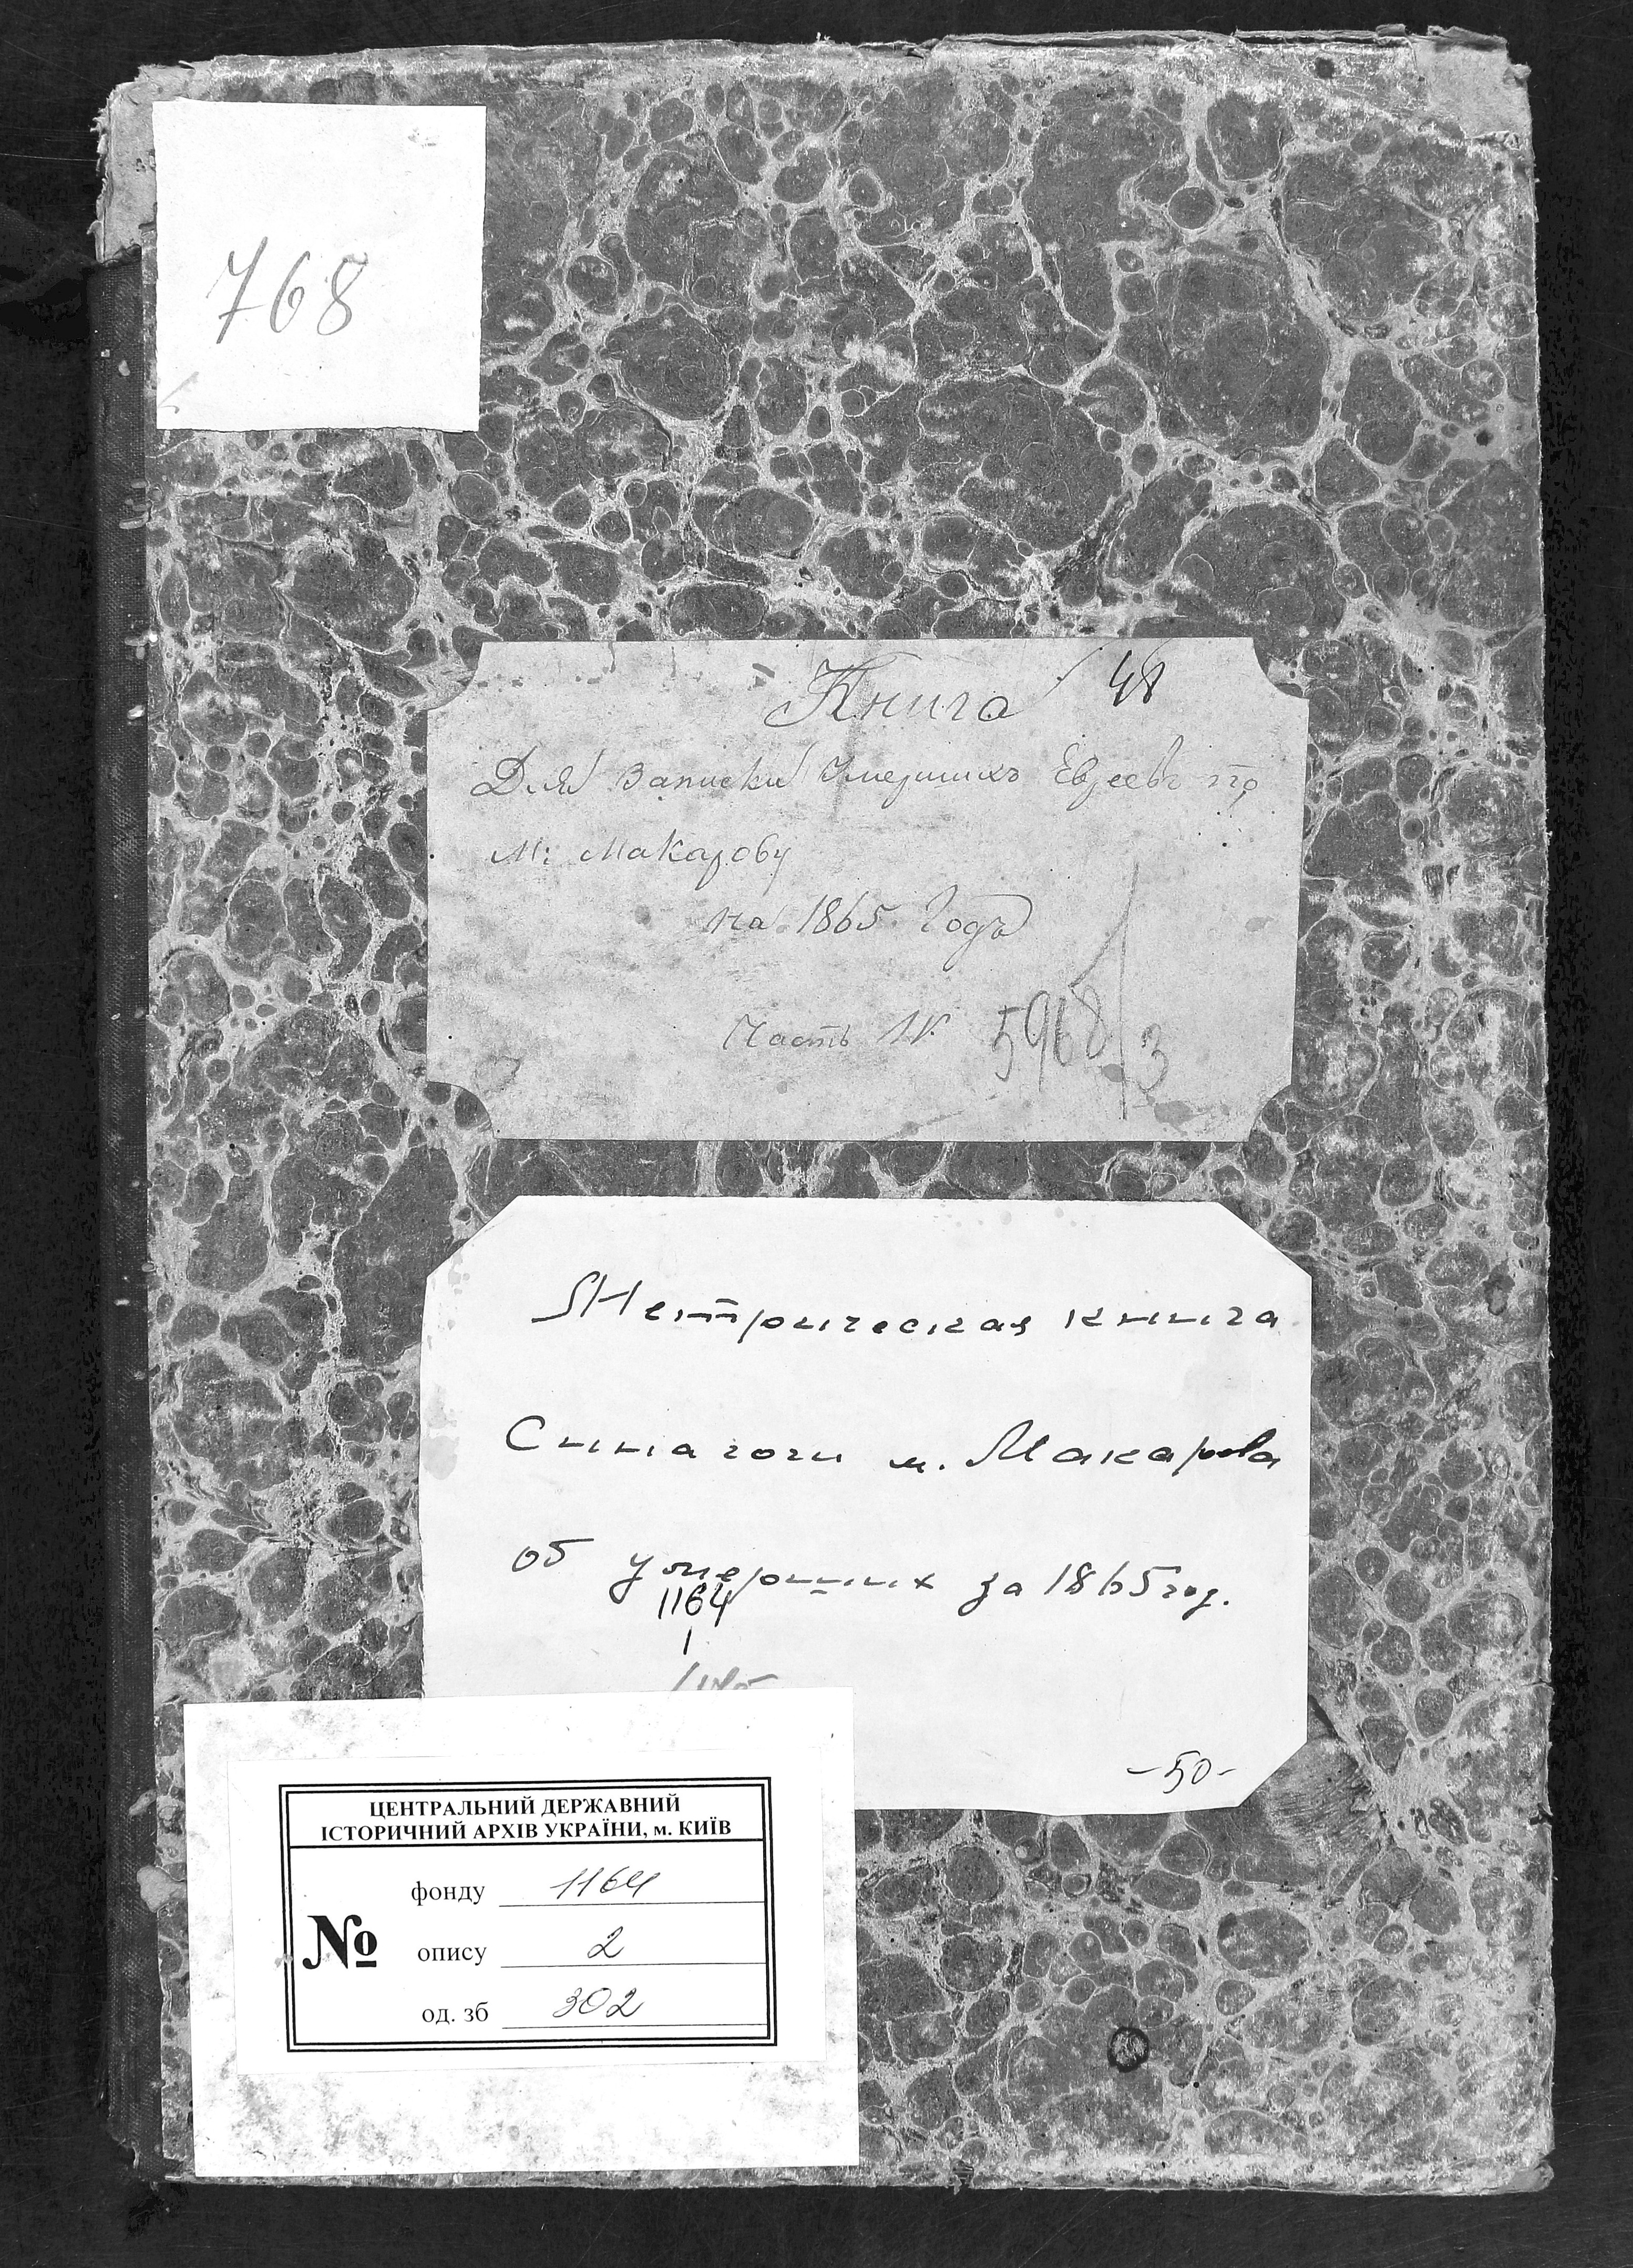 768
Книга 48
Для Записки Умершихъ Евреевъ по
М: Макарову
на 1865 Годъ
Часть IV. 5968/3
Метрическая книга
Синагоги м. Макарова
об умерших за 1865 год.
1164
1
-50-
ЦЕНТРАЛЬНИЙ ДЕРЖАВНИЙ
ІСТОРИЧНИЙ АРХІВ УКРАЇНИ, м. КИЇВ
№
фонду 1164
опису 2
од. зб 302